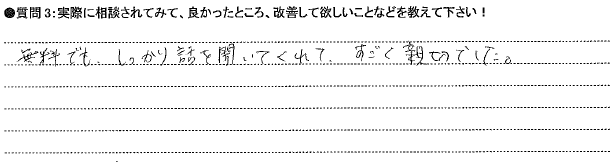 ●質問3:実際に相談されてみて、良かったところ、改善して欲しいことなどを教えて下さい！
無料でも、しっかり話を聞いてくれて、すごく親切でした。